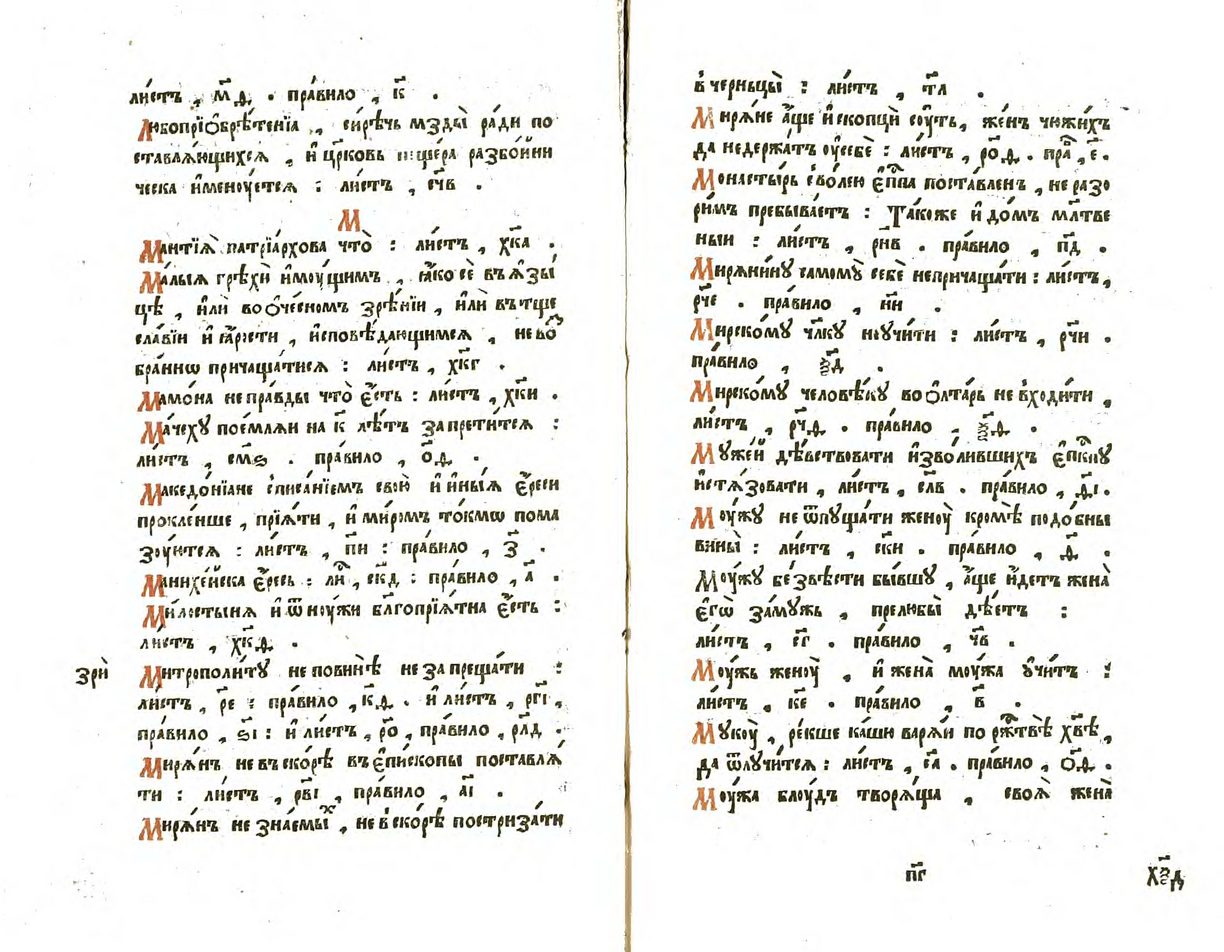 ли́стъ , м҃д . пра́вило , к҃ .
Любопрїѡбрѣ́тенїа , си́рѣчь мзды̀ ра́ди по
ставлѧ́ющихсѧ , и҆ цр҃ковь пеще́ра разбо́йни
ческа и҆мену́етсѧ : ли́стъ , с҃чв .
М
Манті́ѧ патрїа́рхова что̀ : ли́стъ , х҃ка .
Ма́лыѧ грѣхѝ и҆мꙋ́щимъ , ꙗ҆́коже въ ꙗ҆зы́
цѣ , и҆лѝ во ѻ҆́чесномъ зрѣ́нїи , и҆лѝ въ тще
сла́вїи и҆ ꙗ҆́рости , и҆сповѣ́дающимсѧ , не во
бра́ннѡ причаща́тисѧ : ли́стъ , х҃кг .
Мамо́на непра́вды что̀ є҆́сть : ли́стъ , х҃ки .
Ма́чехꙋ пое́млѧи на к҃ лѣ́тъ запрети́тсѧ :
ли́стъ , с҃мѕ . пра́вило , о҃д .
Македо́нїане списа́нїемъ свою̀ и҆ и҆ны́ѧ є҆́реси
прокле́нше , прїѧ́ти , и҆ ми́ромъ то́кмѡ пома
зꙋ́итсѧ : ли́стъ , п҃и : пра́вило , з҃ .
Манихе́йска є҆́ресь : ли́ , с҃кд : пра́вило , а҃ .
Ми́лостынѧ и҆ ѿ нꙋ́жи бл҃гопрїѧ́тна є҆́сть :
ли́стъ , х҃кд .
зрѝ
Митрополи́тꙋ не пови́ннѣ не запреща́ти :
ли́стъ , р҃е : пра́вило , к҃д . и҆ ли́стъ , рг҃і ,
пра́вило , ѕ҃і : и҆ ли́стъ , р҃о , пра́вило , р҃лд .
Мирѧ́нъ не въ ско́рѣ въ є҆пи́скопы поставлѧ́
ти : ли́стъ , рв҃і , пра́вило , а҃і .
Мирѧ́нъ не зна́емыⷯ , не в ско́рѣ постриза́ти
в черньцы̀ : ли́стъ , т҃л .
Мирѧ́не а҆́ще и҆ скопцы̀ сꙋ́ть , же́нъ чюжи́хъ
да не держа́тъ ᲂу҆ себѐ : ли́стъ , р҃од . праⷡ , є҃ .
Монасты́рь с во́лею є҆пⷭ҇па поста́вленъ , не разо
ри́мъ пребыва́етъ : Та́коже и҆ до́мъ мл҃тве
ныи : ли́стъ , р҃нв . пра́вило , п҃д .
Мирѧ́нинꙋ самомꙋ̀ себѐ не причаща́ти : ли́стъ ,
р҃че . пра́вило , н҃и .
Мирско́мꙋ чл҃кꙋ не ᲂу҆чи́ти : ли́стъ , р҃чи .
пра́вило , ѯ҃д .
Мирско́мꙋ человѣ́кꙋ во ѻ҆лта́рь не входи́ти ,
ли́стъ , р҃чд . пра́вило , ѯ҃д .
Мꙋже́й дѣ́вствовати и҆зво́лившихъ є҆пⷭ҇кпꙋ
и҆стѧ́зовати , ли́стъ , с҃лв . пра́вило , д҃і .
Мꙋ́жꙋ не ѿпꙋща́ти женꙋ̀ кромѣ̀ подо́бны
вины̀ : ли́стъ , с҃ки . пра́вило , д҃ .
Мꙋ́жꙋ безвѣ́сти бы́вшꙋ , а҆́ще и҆́детъ жена̀
є҆гѡ̀ за́мꙋжь , прелюбы̀ дѣ́етъ :
ли́стъ , с҃г . пра́вило , ч҃в .
Мꙋ́жь женꙋ̀ , и҆ жена̀ мꙋ́жа ᲂу҆чи́тъ :
ли́стъ , к҃є . пра́вило , в҃ .
Мꙋкꙋ̀ , ре́кше ка́ши варѧ́и по ржⷭ҇твѣ̀ хв҃ѣ ,
да ѿлꙋчи́тсѧ : ли́стъ , с҃а . пра́вило , о҃д .
Мꙋ́жа блꙋ́дъ творѧ́ща , своѧ̀ жена̀
п҃г
х҃ѯд